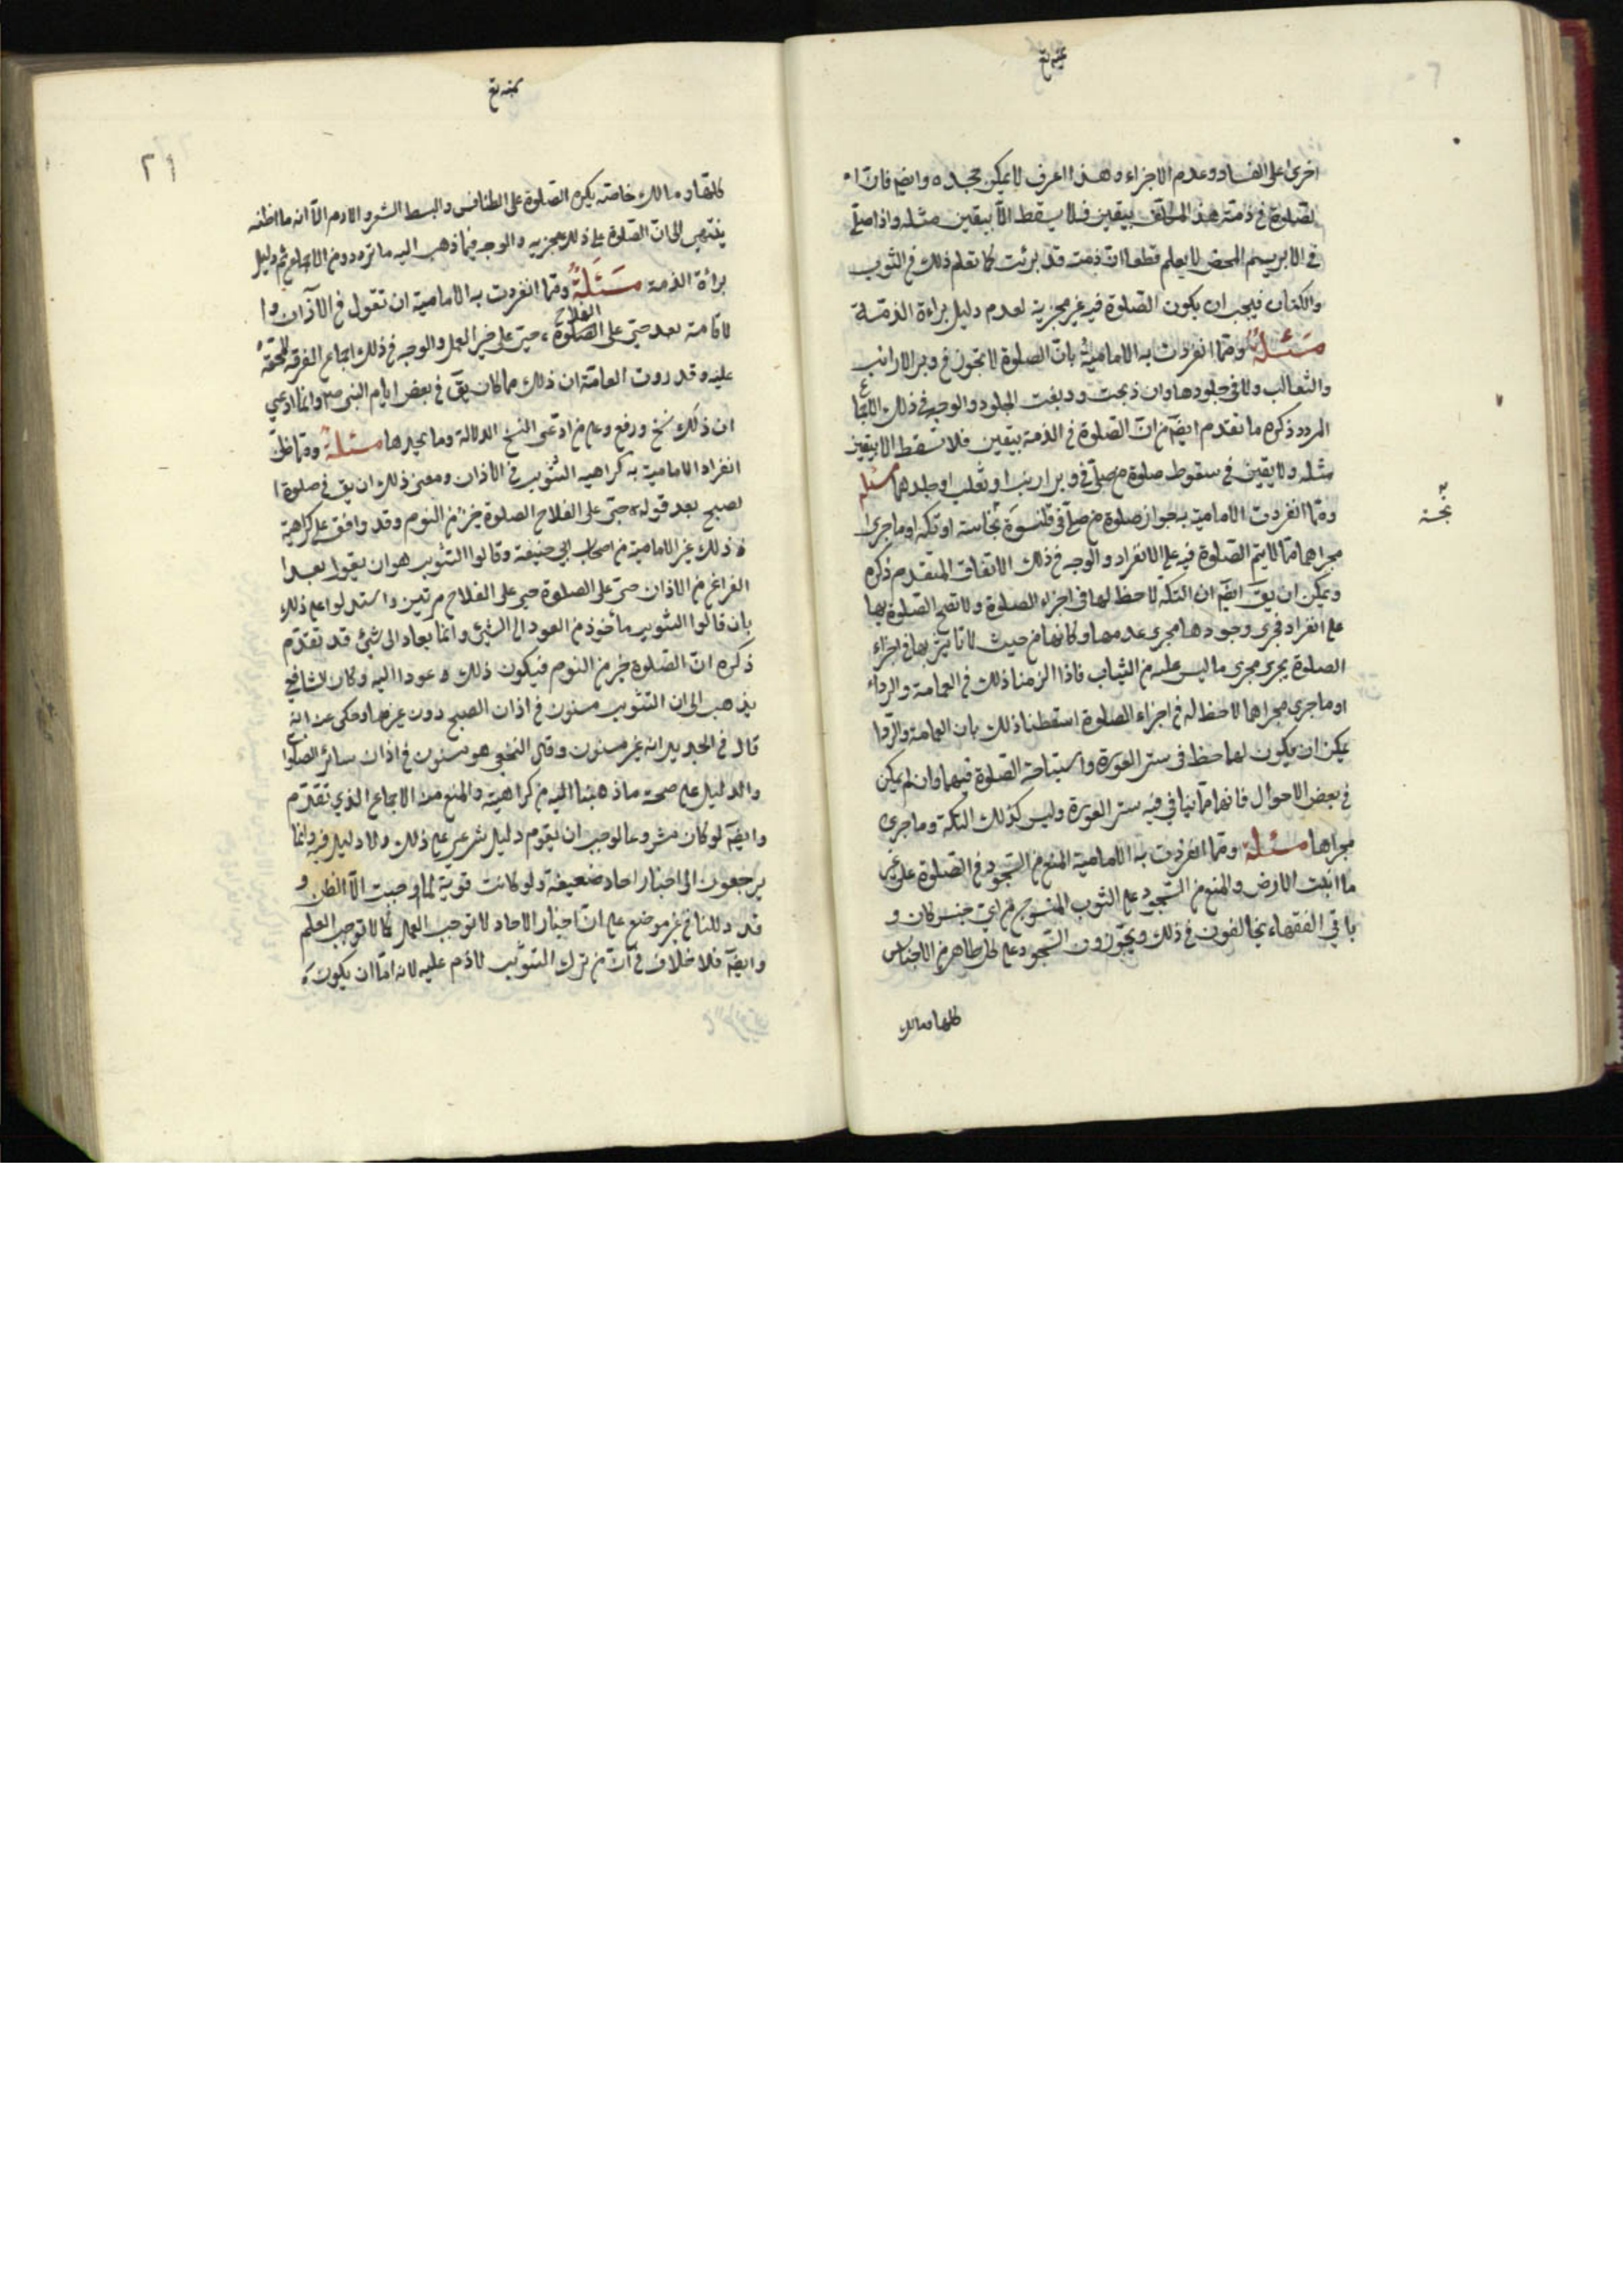 اخرى على الفساد وعدم الاجزاء وهذا العرف لا يمكن جحده وايضا فان ا
لصلوة في ذمة هذا المكلف بيقين فلا يسقط الا بيقين مثله واذا صلى
في الابريسم المحض لا يعلم قطعا ان ذمته قد برئت كما تعلم ذلك في الثوب
والكتان فيجب ان يكون الصلوة فيه غير مجزية لعدم دليل براءة الذمة
مسئلة ومما انفردت به الامامية بان الصلوة لا تجوز في وبر الارانب
والثعالب ولا في جلودها وان ذبحت ودبغت الجلود والوجه في ذلك الاجماع
المردد ذكره ما تقدم ايضا من ان الصلوة في الذمة بيقين فلا تسقط الا بيقين
مثله ولا يقين في سقوط صلوة من صلى في وبر ارنب او ثعلب او جلدهما مسئلة
ومما انفردت الامامية به جواز صلوة من صلى في قلنسوة نجاسة او تكه او ما جرى
مجراهما مما لا يتم الصلوة فيه على الانفراد والوجه في ذلك الاتفاق المتقدم ذكره
ويمكن ان يق ايضا ان التكة لا حظ لها في اجزاء الصلوة ولا تصح الصلوة بها
على انفراد فجرى وجودها مجرى عدمها وكانها من حيث لا تاثير بها في اجزاء
الصلوة يجري مجرى ما ليس عليه من الثياب فاذا الزمنا ذلك في العمامة والرداء
او ما جرى مجراها لا حظ له في اجزاء الصلوة اسقطنا ذلك بان العمامة والردا
يمكن ان يكون لها حظ في ستر العورة واستباحة الصلوة فيهما وان لم يكن
في بعض الاحوال فانهما مما ينافي فيه ستر العورة وليس كذلك التكة وما جرى
مجراها مسئلة ومما انفردت به الامامية المنع من السجود في الصلوة على غير
ما انبتت الارض والمنع من السجود على الثوب المنسوج من اي جنس كان و
باقي الفقهاء يخالفون في ذلك ويجوزون السجود على كل طاهر من الاجناس
كلها ومالك
نجسة
٢١
كلها ومالك خاصة يكره الصلوة على الطنافس والبسط الشعر والادم الا انه ما اظنه
ينتهي الى ان الصلوة على ذلك مجزيه والوجه فيما ذهب اليه ما تردد من الاجماع ثم دليل
براءة الذمة مسئلة ومما انفردت به الامامية ان تقول في الاذان وا
لاقامة بعد حي على الصلوة الفلاح حي على خير العمل والوجه في ذلك اجماع الفرقة المحقة
عليه وقد روت العامة ان ذلك مما كان يق في بعض ايام النبي ص وانما ادعي
ان ذلك نسخ ورفع وعلى من ادعى النسخ الدلالة وما يجدها مسئلة ومما ظن
انفراد الامامية به كراهية التثويب في الاذان ومعنى ذلك ان يق في صلوة ا
لصبح بعد قوله حي على الفلاح الصلوة خير من النوم وقد وافق على كراهية
ذلك غير الامامية من اصحاب ابي حنيفة وقالوا التثويب هو ان يقول بعد ا
الفراغ من الاذان حي على الصلوة حي على الفلاح مرتين واستدلوا على ذلك
بان قالوا التثويب ماخوذ من العود الى الشيء وانما يعاد الى شيء قد تقدم
ذكره ان الصلوة خير من النوم فيكون ذلك عودا اليه وكان الشافعي
يذهب الى ان التثويب مسنون في اذان الصبح دون غيرها وحكى عنه انه
قال في الجديد انه غير مسنون وقال النخعي هو مسنون في اذان سائر الصلوا
والدليل على صحة ما ذهبنا اليه من كراهيته والمنع منه الاجماع الذي تقدم
وايضا لو كان مشروعا لوجب ان يقوم دليل شرعي على ذلك ولا دليل فيه وانما
يرجعون الى اخبار احاد ضعيفة ولو كانت قوية لما اوجبت الا الظن و
قد دللنا في غير موضع على ان اخبار الاحاد لا توجب العمل كما لا توجب العلم
وايضا فلا خلاف في ان من ترك التثويب لا ذم عليه لانه اما ان يكون